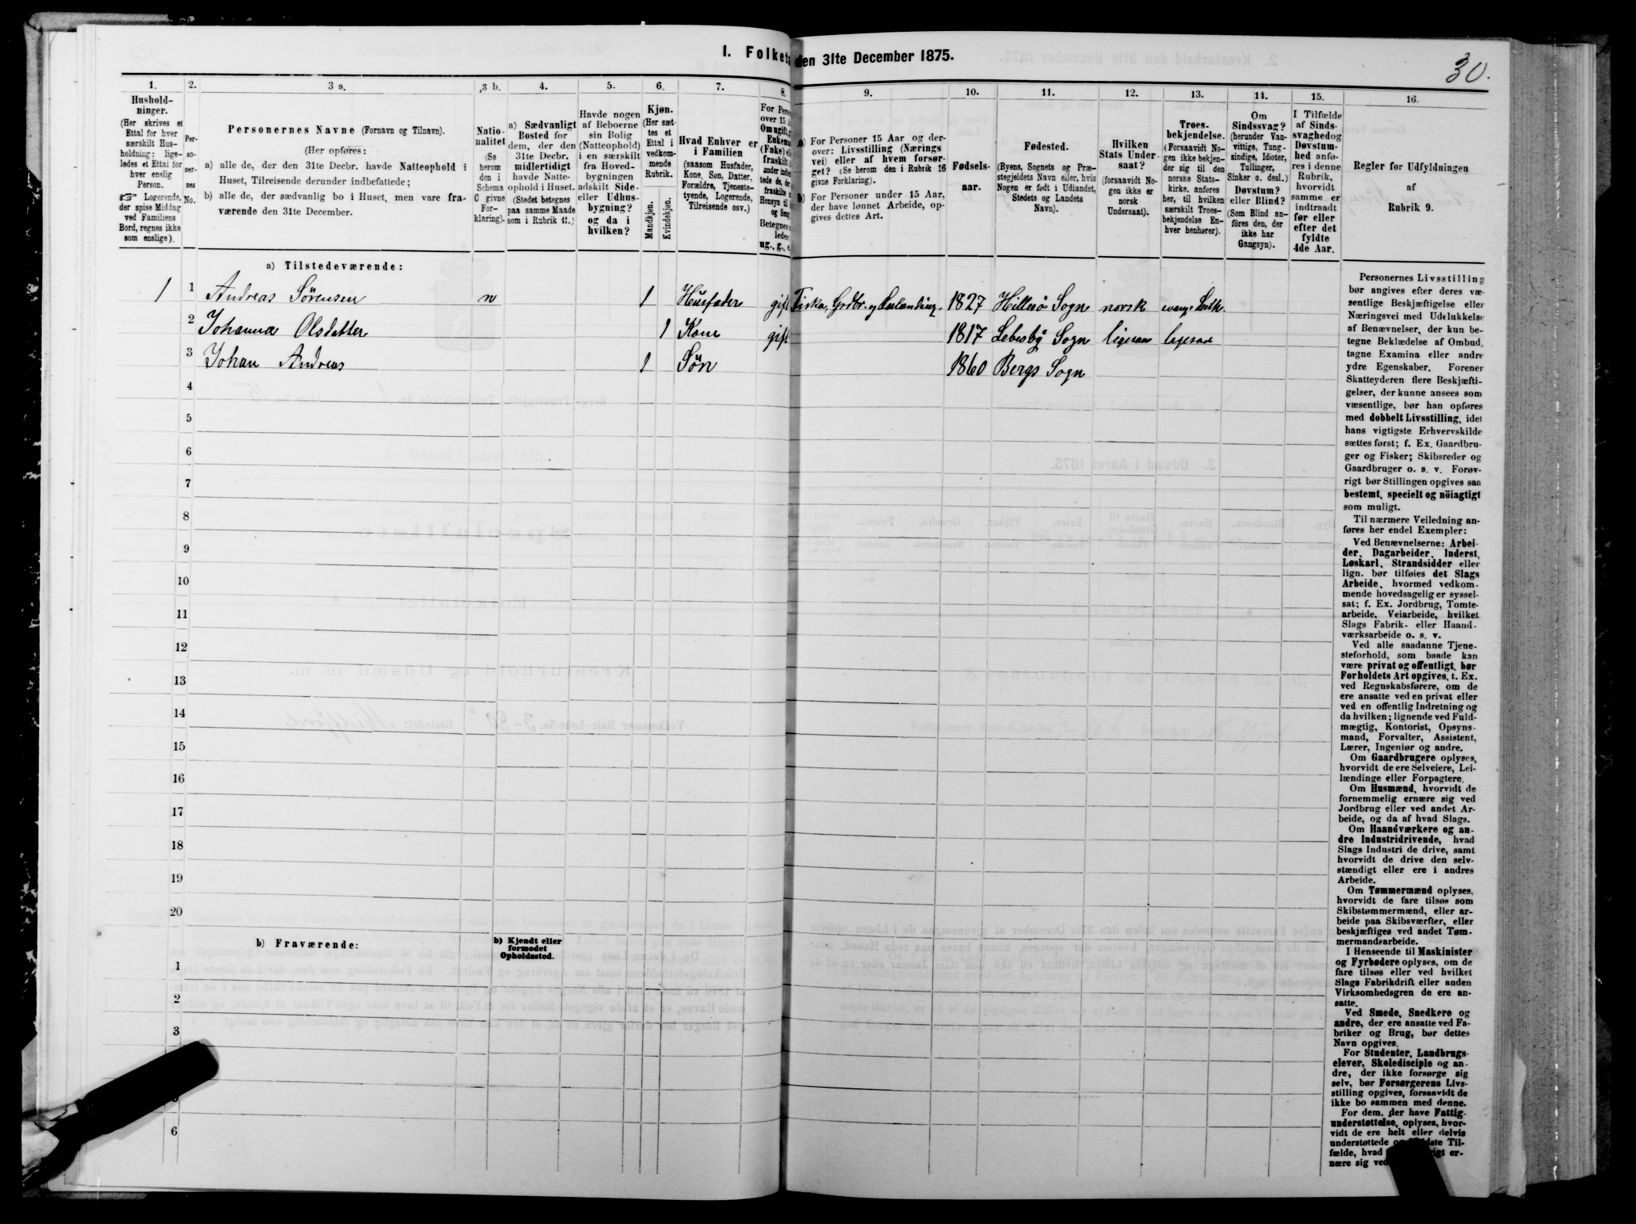 I. Folket den 31te December 1875.
30.
1. 2. 3 a. 3 b. 4. 5. 6. 7. 8. 9. 10. 11. 12. 13. 14. 15. 16.
Hushold-
ninger.
(Her skrives et
Ettal for hver
særskilt Hus-
holdning; lige-
ledes et Ettal for
hver enslig
Person.
☞ Logerende,
der spise Middag
ved Familiens
Bord, regnes ikke
som enslige).
Per-
so-
ner-
nes
No.
Personernes Navne (Fornavn og Tilnavn).
(Her opføres:
a) alle de, der den 31te Decbr. havde Natteophold i
Huset, Tilreisende derunder indbefattede;
b) alle de, der sædvanlig bo i Huset, men vare fra-
værende den 31te December.
Natio-
nalitet
(Se
herom
den i
Schema
C givne
For-
klaring).
a) Sædvanligt
Bosted for
dem, der den
31te Decbr.
midlertidigt
havde Natte-
ophold i Huset.
(Stedet betegnes
paa samme Maade
som i Rubrik 11.)
Havde nogen
af Beboerne
sin Bolig
(Natteophold)
i en særskilt
fra Hoved-
bygningen
adskilt Side-
eller Udhus-
bygning?
og da i
hvilken?
Kjøn.
(Her sæt-
tes et
Ettal i
vedkom-
mende
Rubrik.
Mandkjøn.
Kvindekjøn.
Hvad Enhver er
i Familien
(saasom Husfader,
Kone, Søn, Datter,
Forældre, Tjeneste-
tyende, Logerende,
Tilreisende osv.)
a) For Personer 15 Aar og der-
over: Livsstilling (Nærings
vei) eller af hvem forsør-
get? (Se herom den i Rubrik 16
givne Forklaring).
b) For Personer under 15 Aar,
der have lønnet Arbeide, op-
gives dettes Art.
Fødsels-
aar.
Fødested.
(Byens, Sognets og Præ-
stegjeldets Navn eller, hvis
Nogen er født i Udlandet,
Stedets og Landets
Navn).
Hvilken
Stats Under-
saat?
(forsaavidt No-
gen ikke er
norsk
Undersaat).
Troes-
bekjendelse.
(Forsaavidt No-
gen ikke bekjen-
der sig til den
norske Stats-
kirke, anføres
her, til hvilken
særskilt Troes-
bekjendelse En-
hver henhører).
Om
Sindssvag?
(herunder Van-
vittige, Tung-
sindige, Idioter,
Tullinger,
Sinker o. desl.)
Døvstum?
eller Blind?
(Som Blind an-
føres den, der
ikke har
Gangsyn).
I Tilfælde
af Sinds-
svaghedog
Døvstum-
hed anfø-
res i denne
Rubrik,
hvorvidt
samme er
indtraadt
før eller
efter det
fyldte
4de Aar.
Regler før Udfyldningen
af
Rubrik 9.
a) Tilstedeværende:
1 1 Andreas Sørensen n 1 Husfader gift Fisker, Grdbr. 1827 Hillesø Sogn norsk evang. Luth.
2 Johanna Olsdatter 1 Kone gift 1817 Lebesby Sogn ligesaa ligesaa
3 Johan Andreas 1 Søn 1860 Bergs Sogn
4
5
6
7
8
9
10
11
12
13
14
15
16
17
18
19
20
b) Fraværende:
b) Kjendt eller
formodet
Opholdssted.
1
2
3
6
Personernes Livsstilling
bør angives efter deres væ-
sentlige Beskjæftigelse eller
Næringsvei med Udelukkelse
af Benævnelser, der kun be-
tegne Beklædelse af Ombud,
tagne Examina eller andre
ydre Egenskaber. Forener
Skatteyderen flere Beskjæfti-
gelser, der kunne ansees som
væsentlige, bør han opføres
med dobbelt Livsstilling, idet
hans vigtigste Erhvervskilde
sættes først; f. Ex. Gaardbru-
ger og Fisker; Skibsreder og
Gaardbruger o. s. v. Forøv-
rigt bør Stillingen opgives saa
bestemt, specielt og nöiagtigt
som muligt.
Til nærmere Veiledning an-
føres her endel Exempler:
Ved Benævnelserne: Arbei-
der, Dagarbeider, Inderst,
Løskarl, Strandsidder eller
lign. bør tilføies det Slags
Arbeide, hvormed vedkom-
mende hovedsagelig er syssel-
sat; f. Ex. Jordbrug, Tomte-
arbeide, Veiarbeide, hvilket
Slags Fabrik- eller Haand-
værksarbeide o. s. v.
Ved alle saadanne Tjene-
steforhold, som baade kan
være privat og offentligt, bør
Forholdets Art opgives, t. Ex.
ved Regnskabsførere, om de
ere ansatte ved en privat eller
ved en offentlig Indretning og
da hvilken; lignende ved Fuld-
mægtig, Kontorist, Opsyns-
mand, Forvalter, Assistent,
Lærer, Ingeniør og andre.
Om Gaardbrugere oplyses,
hvorvidt de ere Selveiere, Lei-
lændinge eller Forpagtere.
Om Husmænd, hvorvidt de
fornemmelig ernære sig ved
Jordbrug eller ved andet Ar-
beide, og da af hvad Slags.
Om Haandværkere og an-
dre Industridrivende, hvad
Slags Industri de drive, samt
hvorvidt de drive den selv-
stændigt eller ere i andres
Arbeide.
Om Tømmermænd oplyses,
hvorvidt de fare tilsøs som
Skibstømmermænd, eller ar-
beide paa Skibsværfter, eller
beskjæftiges ved andet Tøm-
mermandsarbeide.
I Henseende til Maskinister
og Fyrbødere oplyses, om de
fare tilsøs eller ved hvilket
Slags Fabrikdrift eller anden
Virksomhedsgren de ere an-
satte.
Ved Smede, Snedkere og
andre, der ere ansatte ved Fa-
briker og Brug, bør dettes
Navn opgives.
For Studenter, Landbrugs-
elever, Skoledisciple og an-
dre, der ikke forsørge sig
selv, bør Forsørgerens Livs-
stilling opgives, forsaavidt de
ikke bo sammen med denne.
For dem, der have Fattig-
understøttelse, oplyses, hvor-
vidt de ere helt eller delvis
understøttede
fælde, hvad
nære sig ved